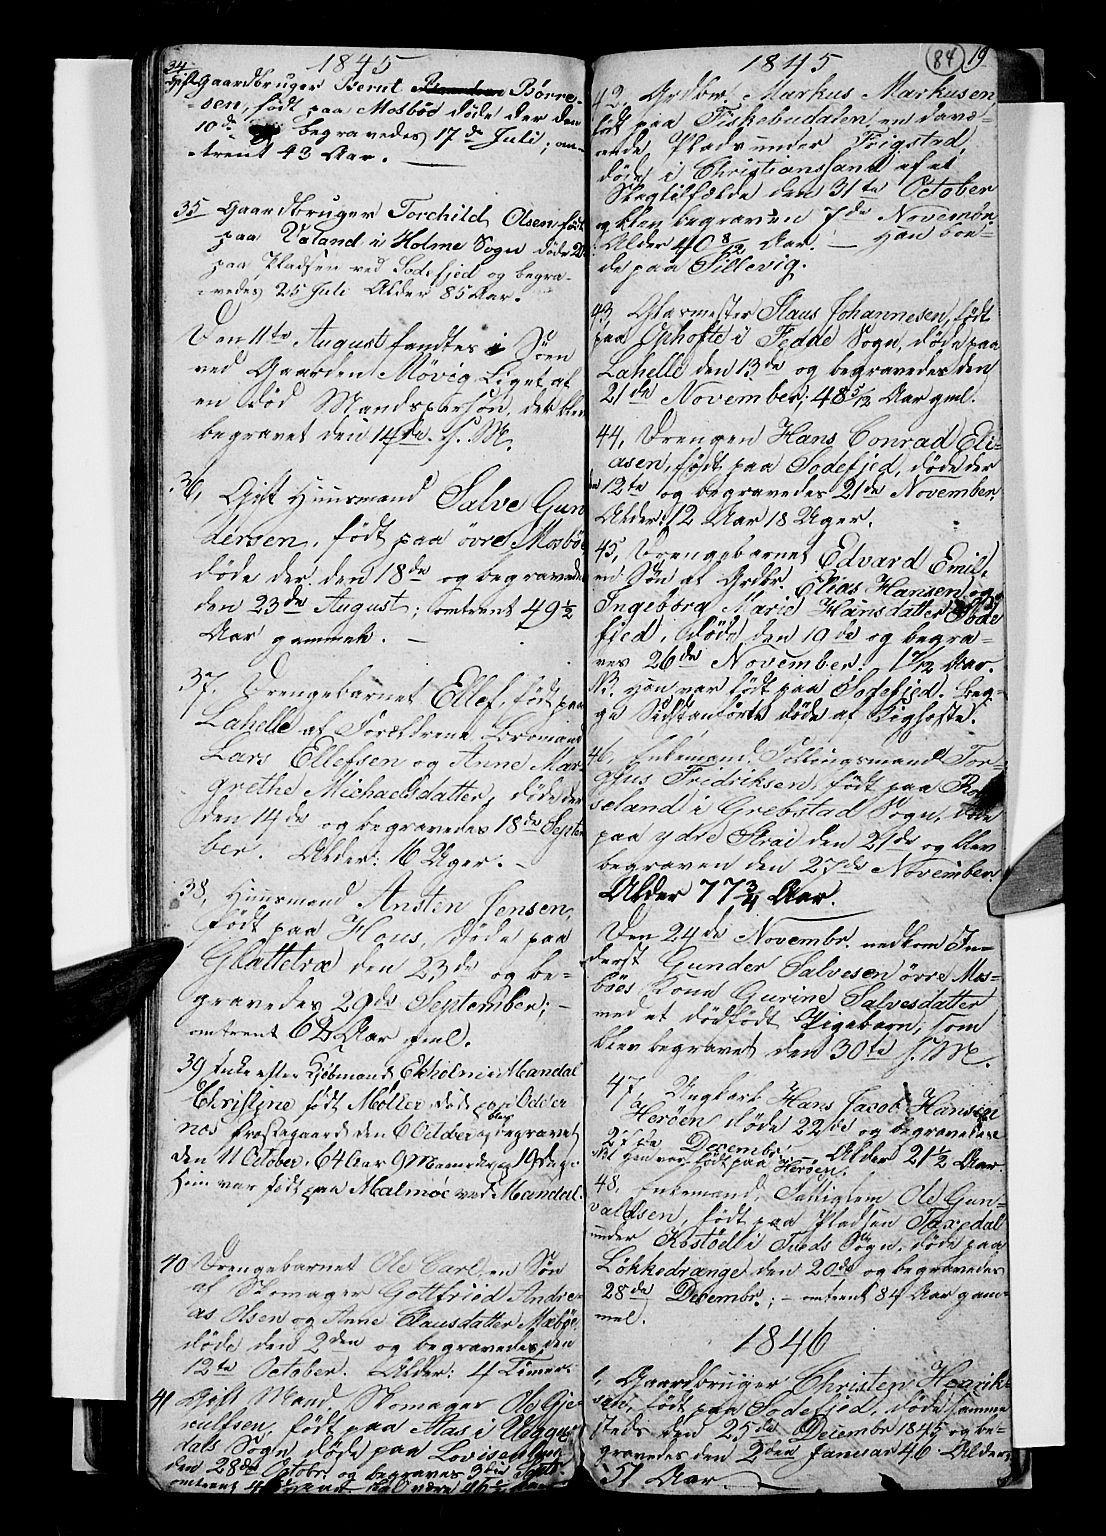 1845
34
Gift Gaardbruger Bernt Børre-
sen, født paa Mosbøe døde der den
10de begravedes 17de Juli; om-
trent 43 Aar. —
35 Gaardbruger Torchild Olsen, født
paa Valand i Holme Sogn døde 20
paa Pladsen ved Sodefjed og begra-
vedes 25 Juli Alder 85 Aar.
Den 11te August fandtes i Søen
ved Gaarden Møvig Liget af
en død Mandsperson, det blev
begravet den 14de s. M.
36, Gift Huusmand Salve Gun
dersen, født paa øvre Mosbøe
døde der den 18de og begravedes
den 23de August; omtrent 49½
Aar gammel. —
37, Drengebarnet Ellef, født paa
Lahelle af Forældrene Bromand
Lars Ellefsen og Anne Mar-
grethe Michaelsdatter, døde der
den 14de og begravedes 18de Septem
ber. Alder: 16 Uger. —
38, Huusmand Ansten Jensen,
født paa Hous, døde paa
Glattetræ den 23de og be-
gravedes 29de September; —
omtrent 62 Aar gml.
39 Enke efter Kjøbmand Ekholm i Mandal
Christine født Møller døde paa Odder
næs Præstegaard den 6 October og blev begravet
den 11 October, 64 Aar 9 Maaneder og 19 Dage.
Hun var født paa Malmøe ved Mandal.
40 Drengebarnet Ole Carl, en Søn
af Skomager Gottfried Andre-
as Olsen og Anne Clausdatter Mæbøe,
døde den 2den og begravedes den
12te October. Alder: 4 Timer.
41 Gift Mand, Skomager Ole Gje
rulfsen, født paa Aas i Undal
dals Sogn døde paa Lovisenberg
den 28de Octobr og begraves 3die Novbr
1845
84 19
42, Grdbr. Markus Markusen,
født paa Fiskebudalen, en davæ-
rende Plads under Frigstad,
døde i Christianssand af et
Slagtilfælde den 31te October
og blev begraven 7de Novembr
Alder 40 8/12 Aar. — Han boe-
de paa Tillevig.
43, Glarmester Claus Johannesen, født
paa Ophofte i Fedde Sogn, døde paa
Lahelle den 13de og begravedes den
21de November; 48 5/12 Aar gml.
44, Drengen Hans Conrad Eli-
asen, født paa Sodefjed, døde der
den 12te og begravedes 21de November.
Alder: 12 Aar 18 Uger.
45, Drengebarnet Edvard Emil,
en Søn af Grdbr. Elias Hansen og
Ingeborg Marie Hansdatter Sode
fjed, døde den 19de og begra-
ves 26de November. 1 7/12 Aar.
NB. Han var født paa Sodefjed. Beg-
ge Sidstanførte døde af Kighoste.
46, Enkemand, Føllingsmand Tor-
gius Fridriksen, født paa Ros
seland i Grebstad Sogn, døde
paa ydre Strai den 21de og blev
begraven den 27de November.
Alder 77¾ Aar.
Den 24de Novembr. nedkom In-
derst Gunder Salvesen øvre Mos-
bøes Kone Gurine Salvesdatter
med et dødfødt Pigebarn, som
blev begravet den 30te s. M.
47, Ungkarl Hans Jacob Hansen
Herøen døde 22de og begravedes
27de Decembr. Alder 21½ Aar.
NB. Han var født paa Herøen.
48, Enkemand, Fattiglem Ole Gun-
valdsen, født paa Pladsen Faxedal
under Kostøel i Tveds Sogn, døde paa
Løkkedrange den 20de og begravedes
28de Decembr.; — omtrent 84 Aar gam-
mel.
1846
1. Gaardbruger Christen Henrik-
sen, født paa Sodefjed, døde samme
steds den 25de Decembr 1845 og be-
gravedes den 2den Januar 46 Alder
51 Aar.